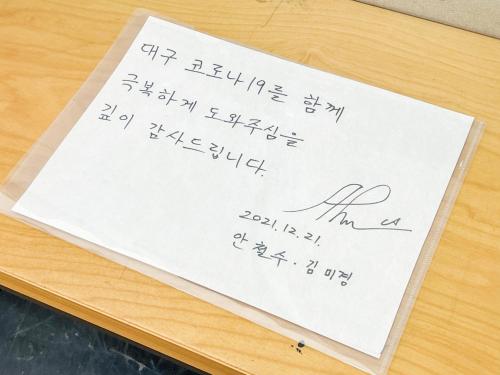 대구 코로나19를 함께
극복하게 도와주심을
깊이 감사드립니다.
2021.12.21.
안철수·김미경